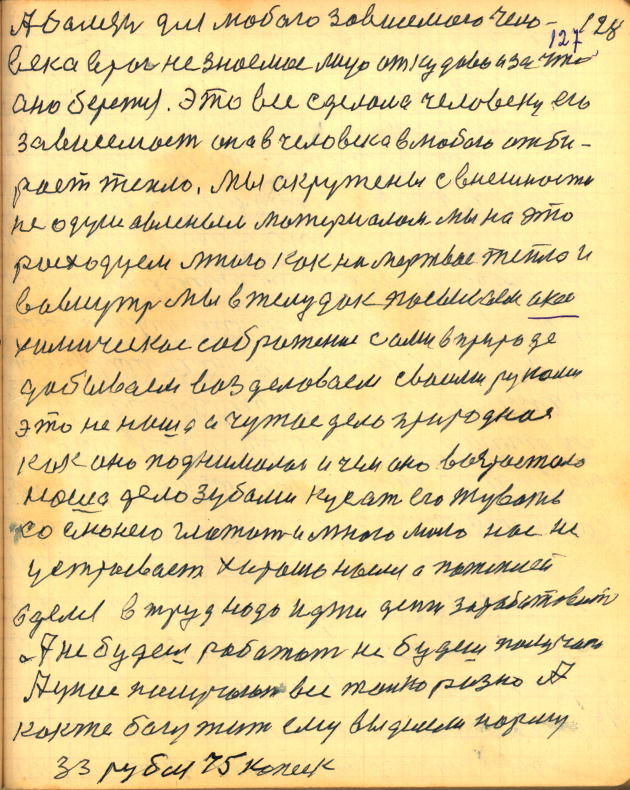 А болезнь для любого зависемого чело- 128
127
века враг не знаемое лицо откудова и за что
оно берется. Это все сделала человеку его
зависемост она в человека в любого отби-
рает тепло. Мы окружены с внешности
не одушавленым материалом мы на это
расходуем много как на мертвое тепло и
вовнутр мы в желудок посылаем
химическое сображение сами в природе
добываем возделоваем своими руками
это не наша а чужое дело природная
как оно поднималос и чем оно возростало
наша дело зубами кусат его жувать
со слюнею глотат и много мало нас не
устраевает хитрать нами а
в труд надо идти денги зарабатовать
А не будеш работат не будеш получать
А у нас все толко разно А
как же богу жит ему выделели норму
33 рубля 75 копеек